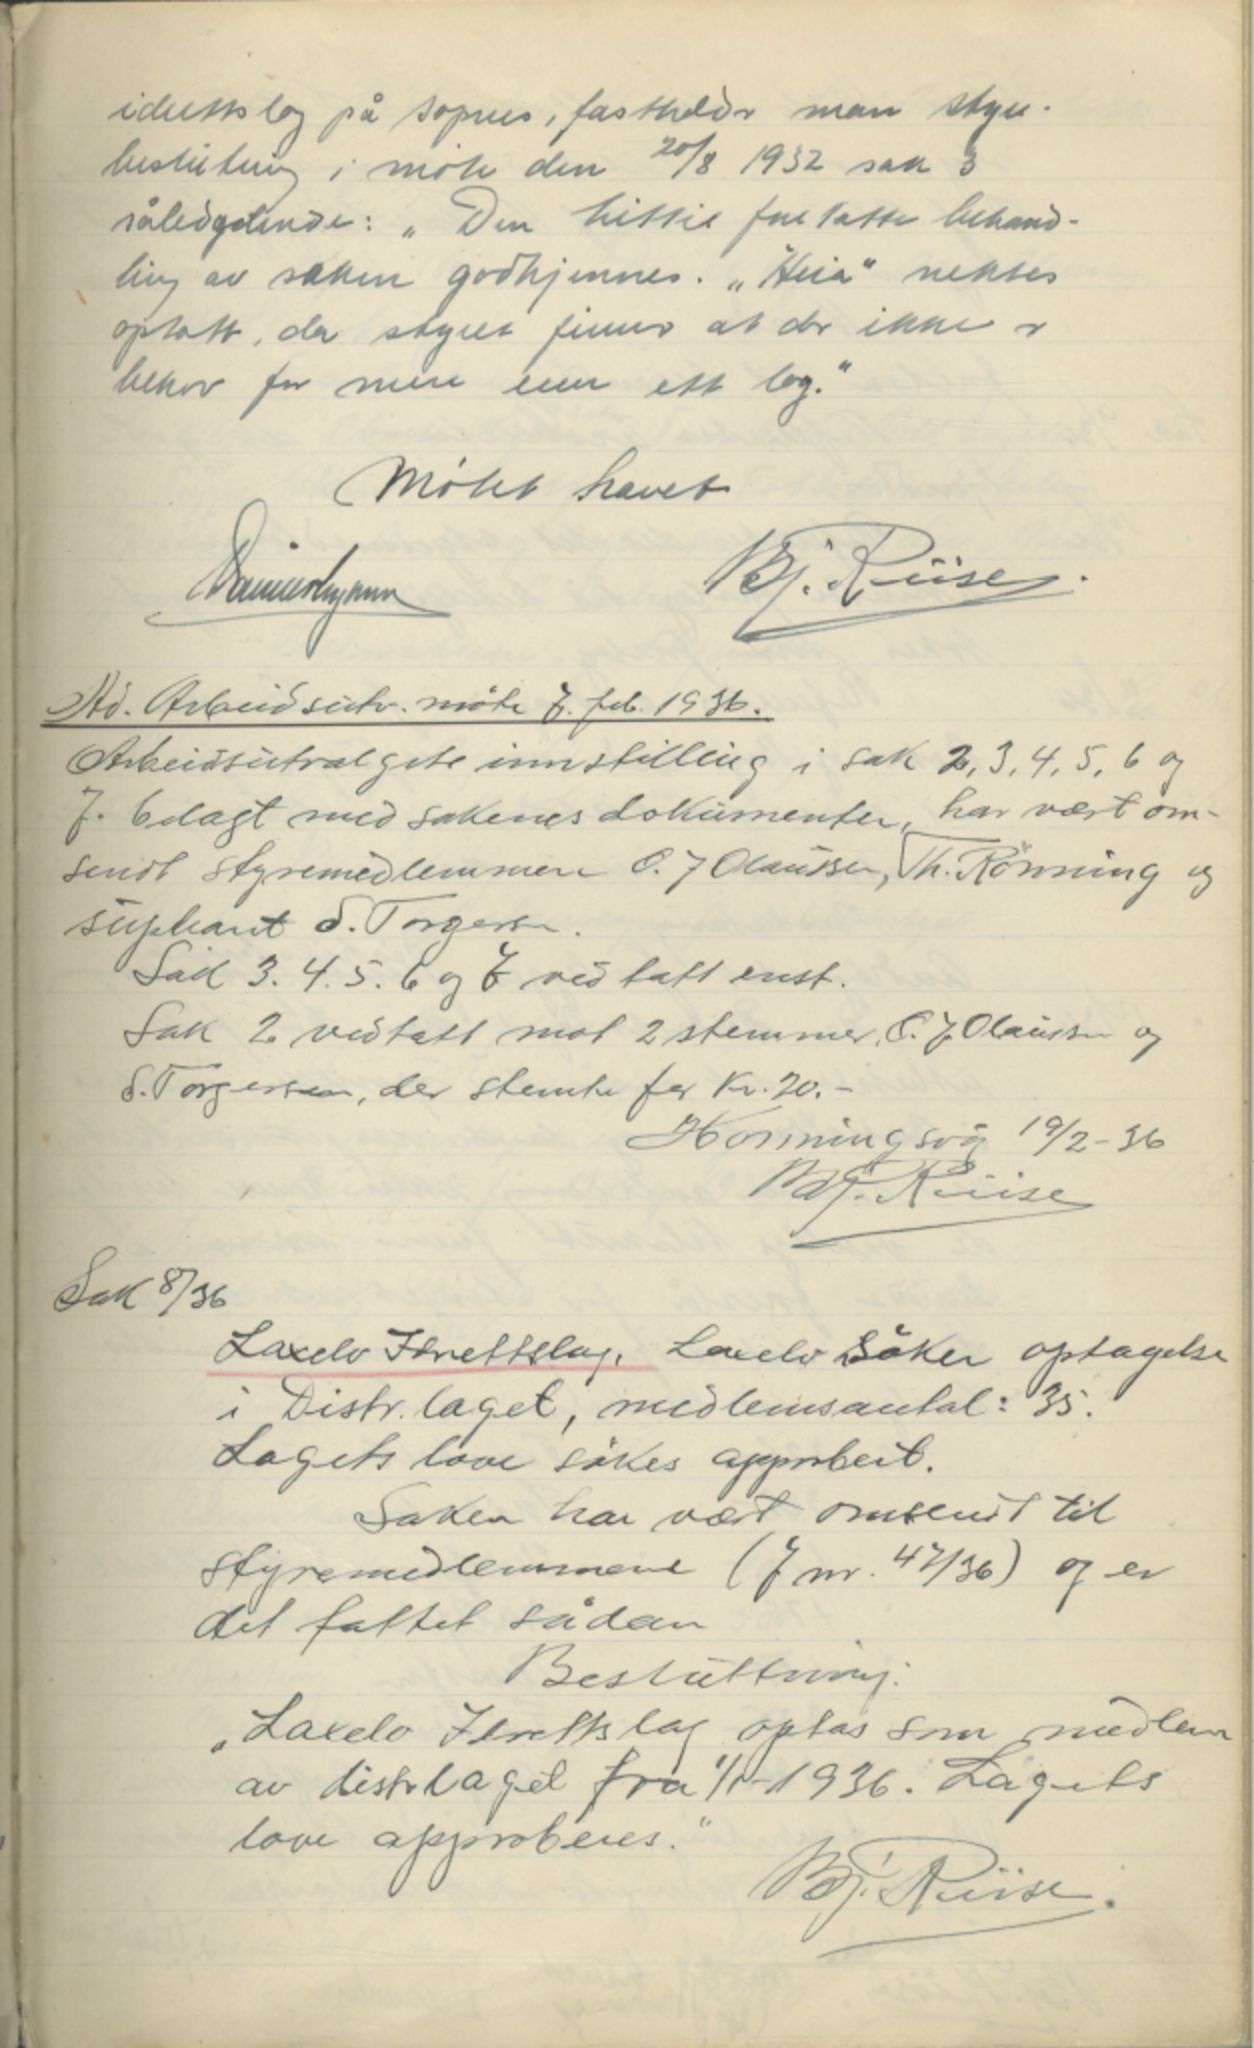 idrettslag på Sopnes, fastholder man styre-
beslutning i møte den 20/8 1932 sak 3
sålydende: „Den hittil foretatte behand-
ling av saken godkjennes. „Heia" nektes
optatt, da styret finner at der ikke er
behov for mere enn ett lag."
Møtet hevet
Bj. Riise.
Ad. Arbeidsutv. møte 7. feb. 1936.
Arbeidsutvalgets innstilling i sak 2, 3, 4, 5, 6 og
7. belagt med sakenes dokumenter, har vært om-
sendt styremedlemmene O. J Olaussen, Th. Rönning og
supleant S. Torgersen.
Sak 3. 4. 5. 6 og 7 vedtatt enst.
Sak 2 vedtatt mot 2 stemmer, O. J. Olaussen og
S. Torgersen, der stemte for Kr. 20.-
Honningsvåg 19/2-36
Bj. Riise
Sak 8/36
Laxelv Idrettslag. Laxelv søker optagelse
i Distr. laget, medlemsantal: 35.
Lagets love søkes approbert.
Saken har vært omsendt til
styremedlemmene (J nr. 47/36) og er
det fattet sådan
Beslutning:
„Laxelv Idrettslag optas som medlem
av distr.laget fra 1/1-1936. Lagets
love approberes."
Bj. Riise.